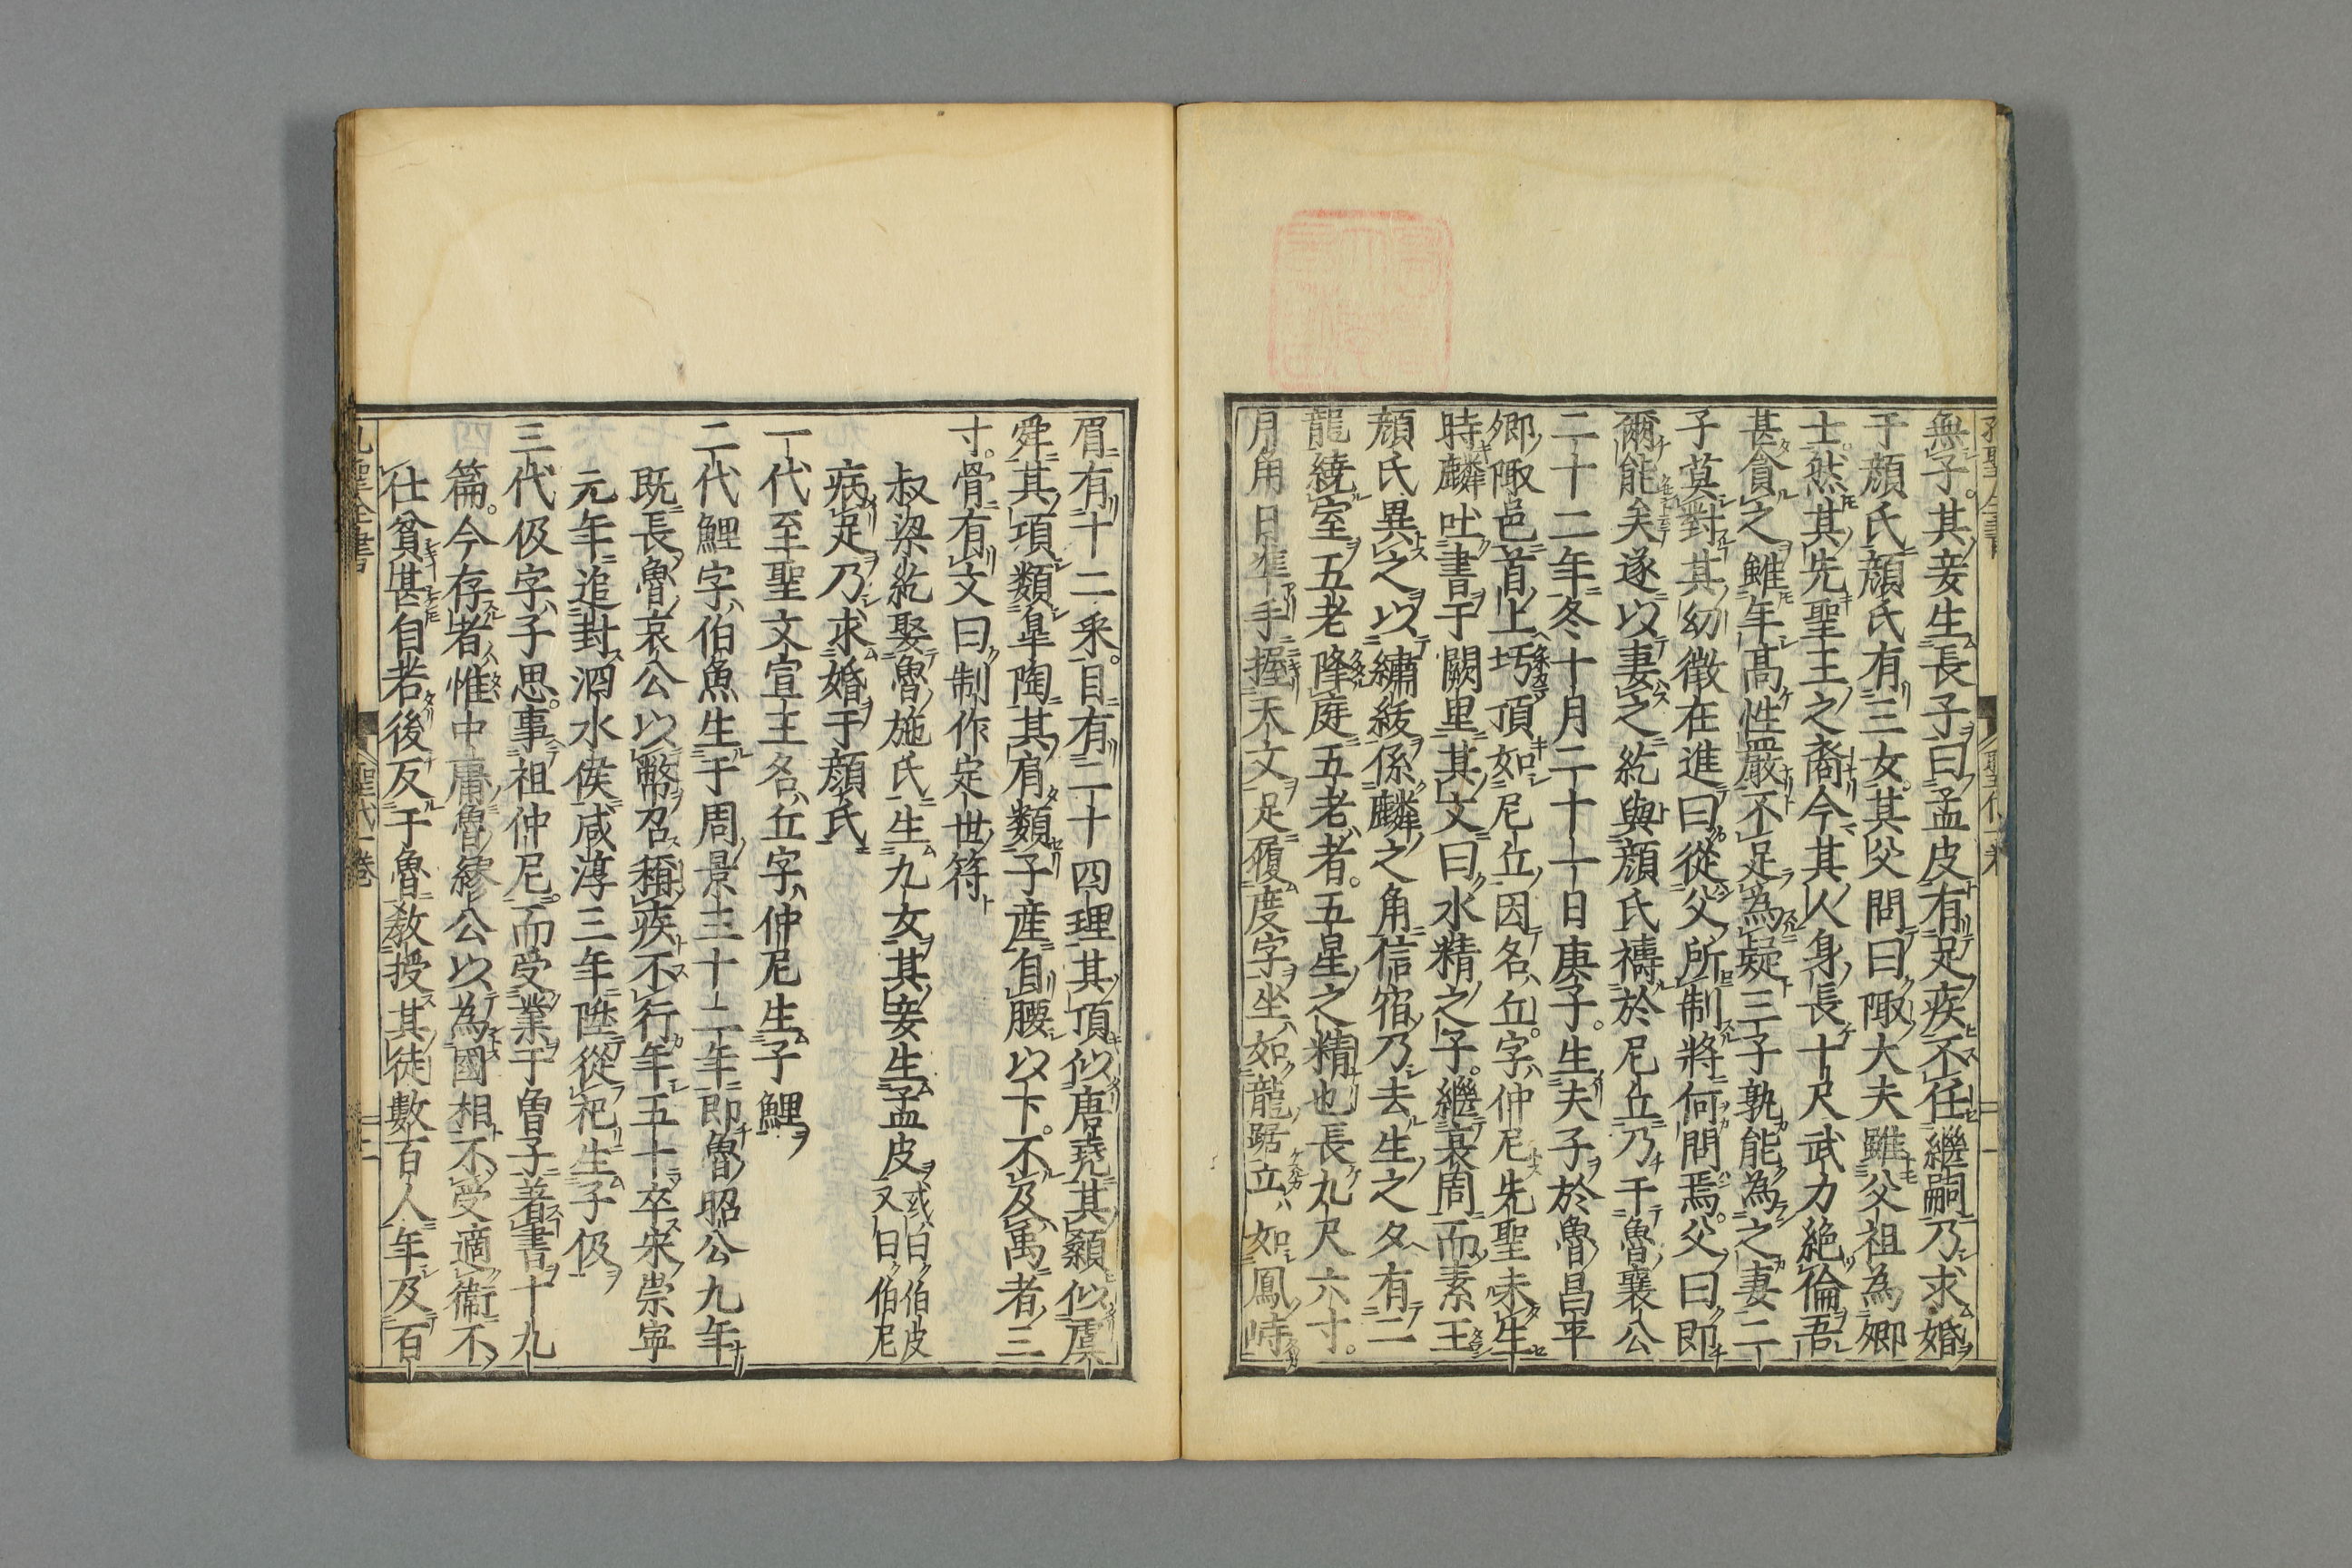 無子其妾生長子曰孟皮有足疾不任繼嗣乃求婚
于顔氏顔氏有三女其父問曰陬大夫雖父祖為卿
士然其先聖王之裔今其人身長十尺武力絶倫吾
甚貪之雖年高性嚴不足為疑三子孰能為之妻二
子莫對其幼徴在進曰從父所制將何問焉父曰即
爾能矣遂以妻之紇與顔氏禱於尼丘乃于魯襄公
二十二年冬十月二十一日庚子生夫子於魯昌平
郷陬邑首上圬頂如尼丘因名丘字仲尼先聖未生
時麟吐書于闕里其文曰水精之子繼衰周而素王
顔氏異之以繡紱係麟之角信宿乃去生之夕有二
龍繞室五老降庭五老者五星之精也長九尺六寸
月角日準手握天文足履度字坐如龍踞立如鳳峙
眉有十二釆目有二十四理其頂似唐堯其顙似虞
舜其項類皐陶其肩類子産自腰以下不及禹者三
寸骨有文曰制作定世符
叔梁紇娶魯施氏生九女其妾生孟皮或曰伯皮又曰伯尼
病足乃求婚于顔氏
一代至聖文宣王名丘字仲尼生子鯉
二代鯉字伯魚生于周景王十二年即魯昭公九年
既長魯哀公以幣召稱疾不行年五十卒宋崇寧
元年追封泗水侯咸淳三年陞從祀生子伋
三代伋字子思事祖仲尼而受業于曽子著書十九
篇今存者惟中庸魯繆公以為國相不受適衞不
仕貧甚自若後反于魯教授其徒數百人年及百
孔聖全書 聖代一卷 二